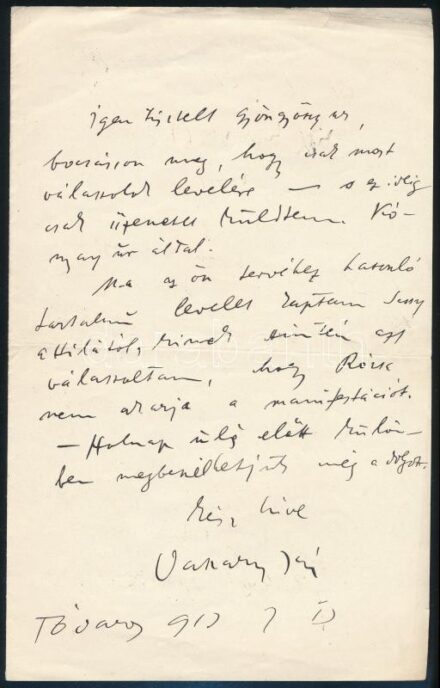 igen tisztelt Gyöngyösy úr,
bocsásson meg, hogy csak most
válaszolok levelére — s eddig
csak üzenetet küldtem Kó-
nyay úr által.
Ma az ön tervéhez hasonló
tartalmú levelet kaptam
Attilától, kinek szintén azt
válaszoltam, hogy Rózsa
nem akarja a manifestációt.
— Holnap ülés előtt külön-
ben megbeszélhetjük még a dolgot.
kész híve
Vaszary János
Tóváros